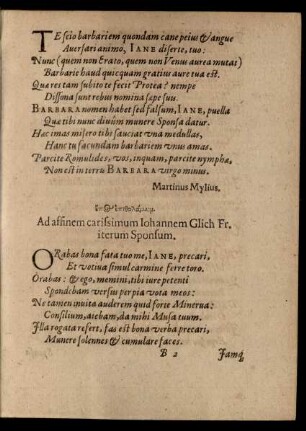 TE scio barbariem quondam cane peius & angue
Aversari animo, IANE diserte, tuo:
Nunc (quem non Erato, quem non Venus aurea mutas)
Barbarie haud quicquam gratius aure tua est.
Qua res tam subito te fecit Protea? nempe
Dissona sunt rebus nomina sæpe suis.
BARBARA nomen habet sed falsum, IANE, puella
Quæ tibi nunc divûm munere Sponsa datur.
Hac imas misero tibi sauciat vna medullas,
Hanc tu facundam barbariem vnus amas.
Parcite Romulides, vos, inquam, parcite nymphæ,
Non est in terra BARBARA virgo minus.
Martinus Mylius.
Ad affinem carissimum Iohannem Glich Fr.
iterum Sponsum.
ORabas bona fata tuo me, IANE, precari,
Et votiva simul carmine ferre toro.
Orabas: & ego, memini, tibi iure petenti
Spondebam versu per pia vota meos:
Ne tamen invita auderem quid forte Minerva:
Consilium, aiebam, da mihi Musa tuum.
Illa rogata refert, fas est bona verba precari,
Munere solennes & cumulare faces.
B 2 Iamq́